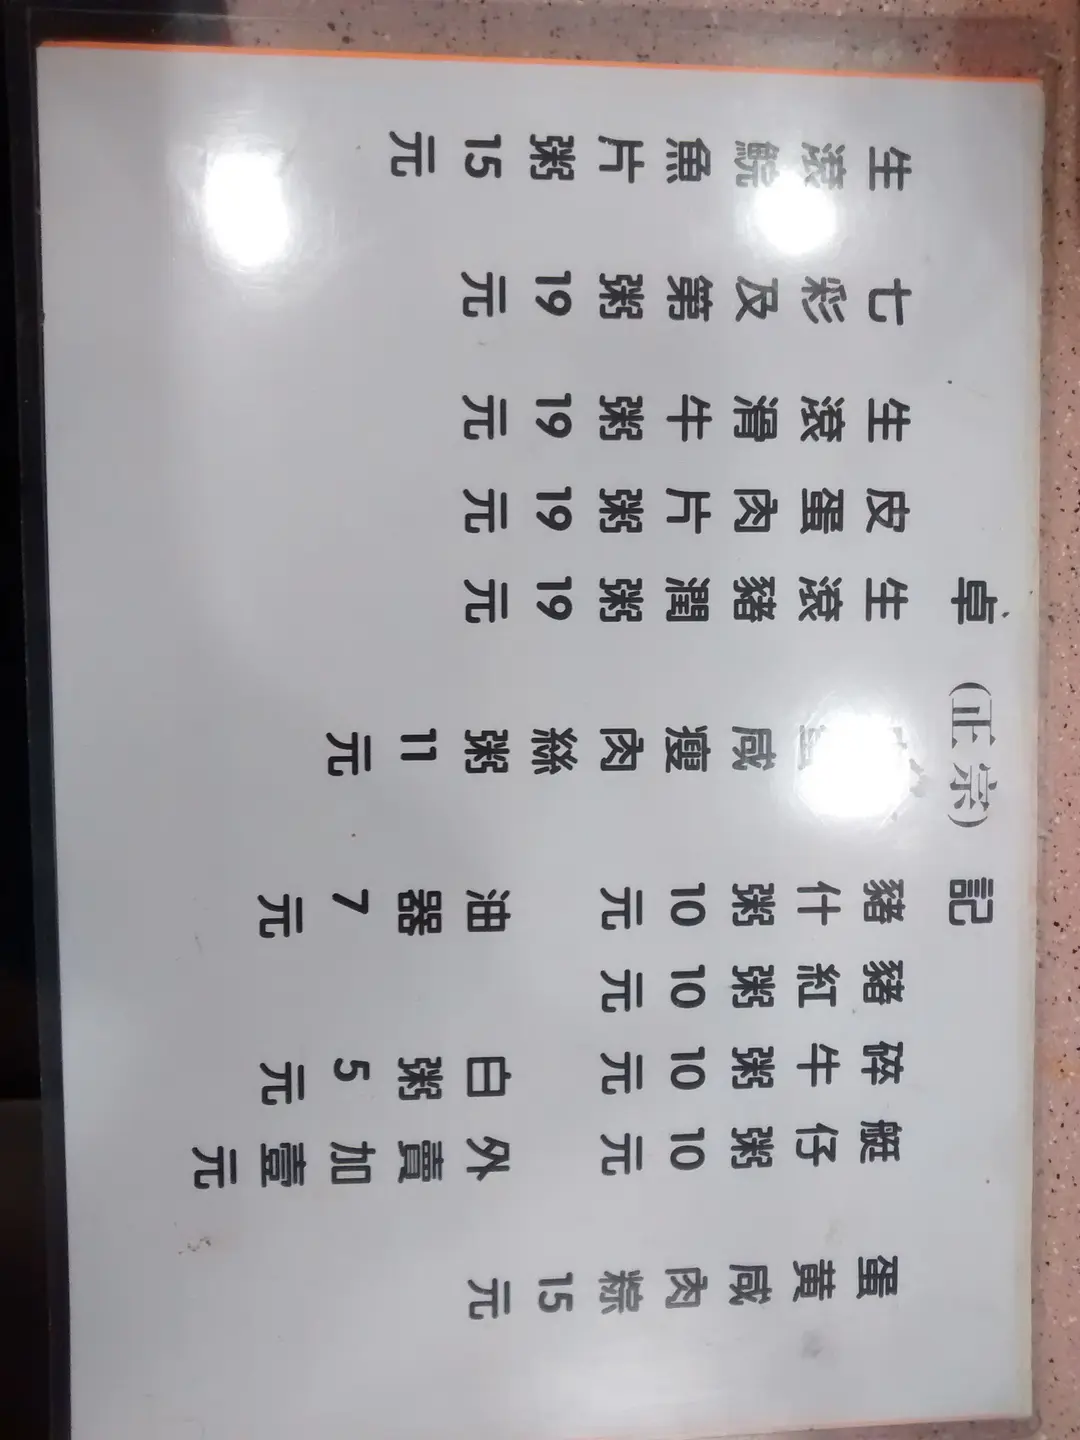 卓(正宗)記
生滾鯇魚片粥15元
七彩及第粥19元
生滾滑牛粥19元
皮蛋肉片粥19元
生滾豬潤粥19元
咸瘦肉絲粥11元
豬什粥10元
油器7元
豬紅粥10元
碎牛粥10元
白粥5元
艇仔粥10元
外賣加壹元
蛋黄咸肉粽15元